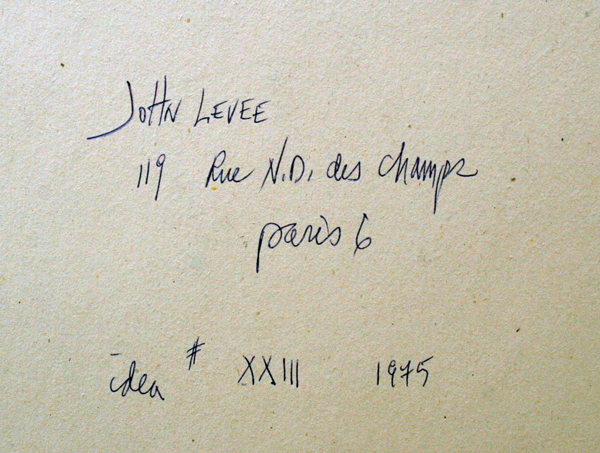 JOHN LEVEE
119 Rue N.D. des Champs
paris 6
idea # XXIII 1975